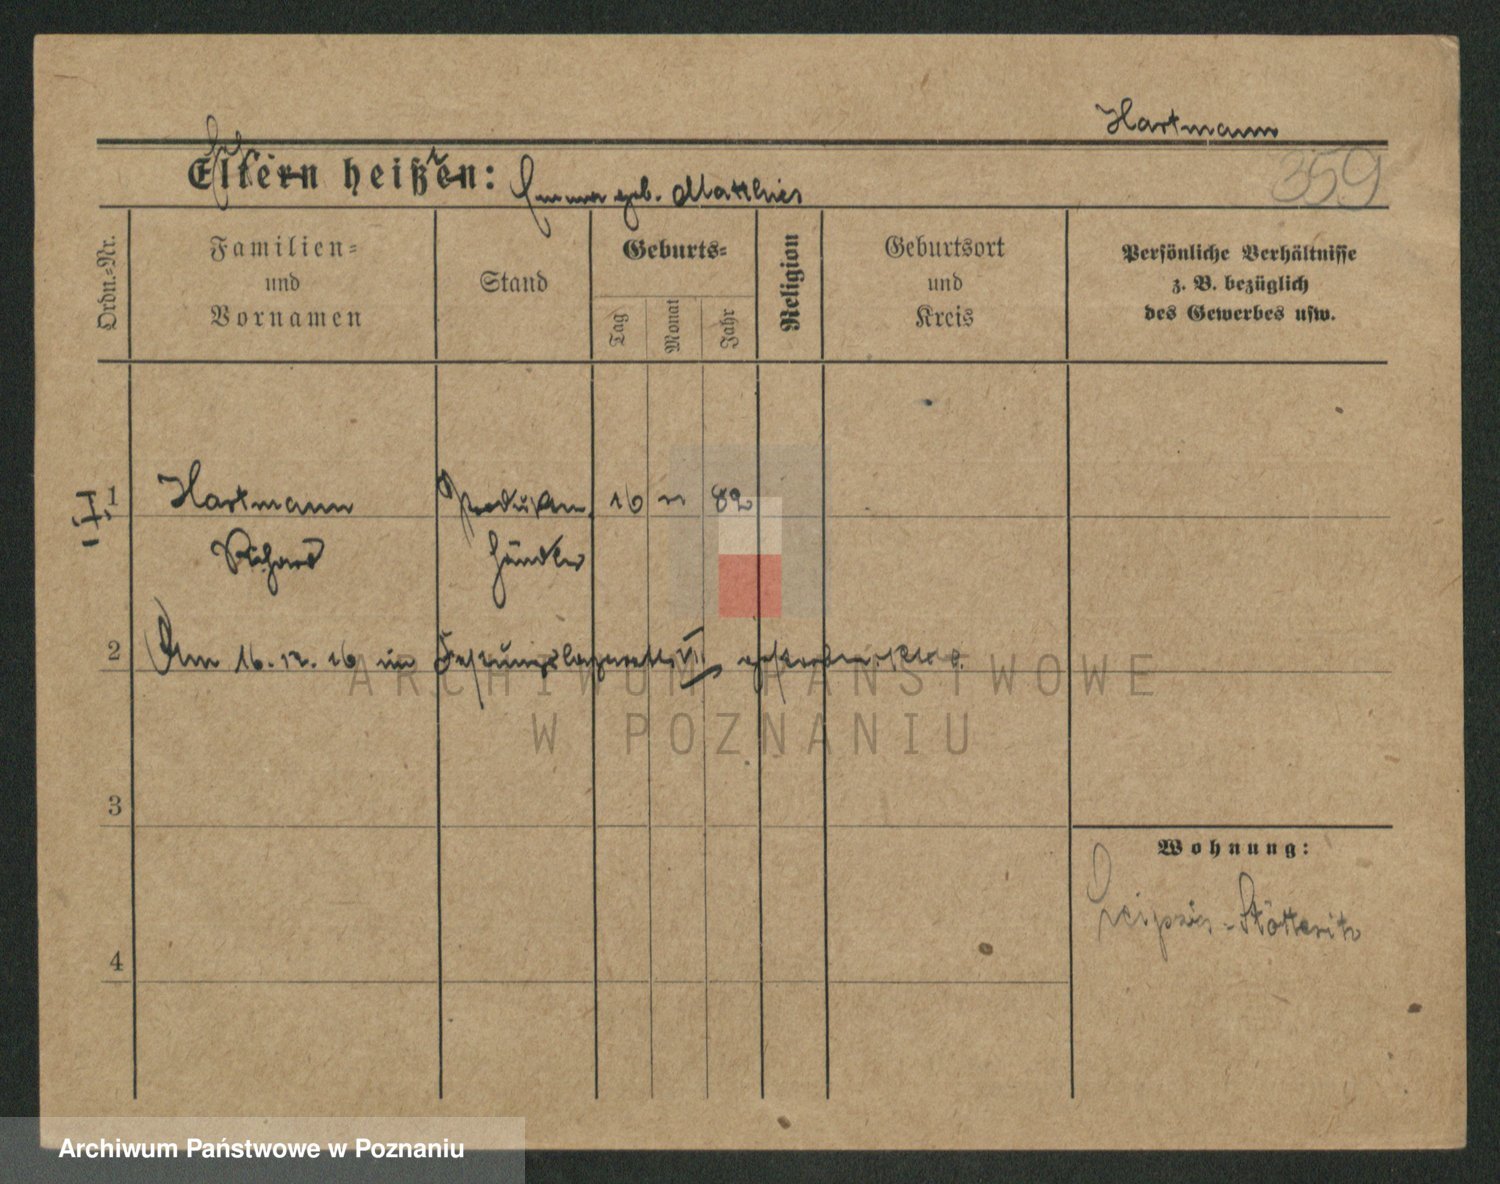 Hartmann
359
Eltern heißen: Emma geb. Matthies
Ordn.=Nr.
Familien=
und
Vornamen
Stand
Geburts=
Tag
Monat
Jahr
Religion
Geburtsort
und
Kreis
Persönliche Verhältnisse
z. B. bezüglich
des Gewerbes usw.
1
Hartmann
Produkten
16
82
Richard
händler
2
Am 16. 12. 16 im Festungslazarett VII gestorben
3
4
Wohnung:
Leipzig-Stötteritz
ARCHIWUM PAŃSTWOWE
W POZNANIU
Archiwum Państwowe w Poznaniu